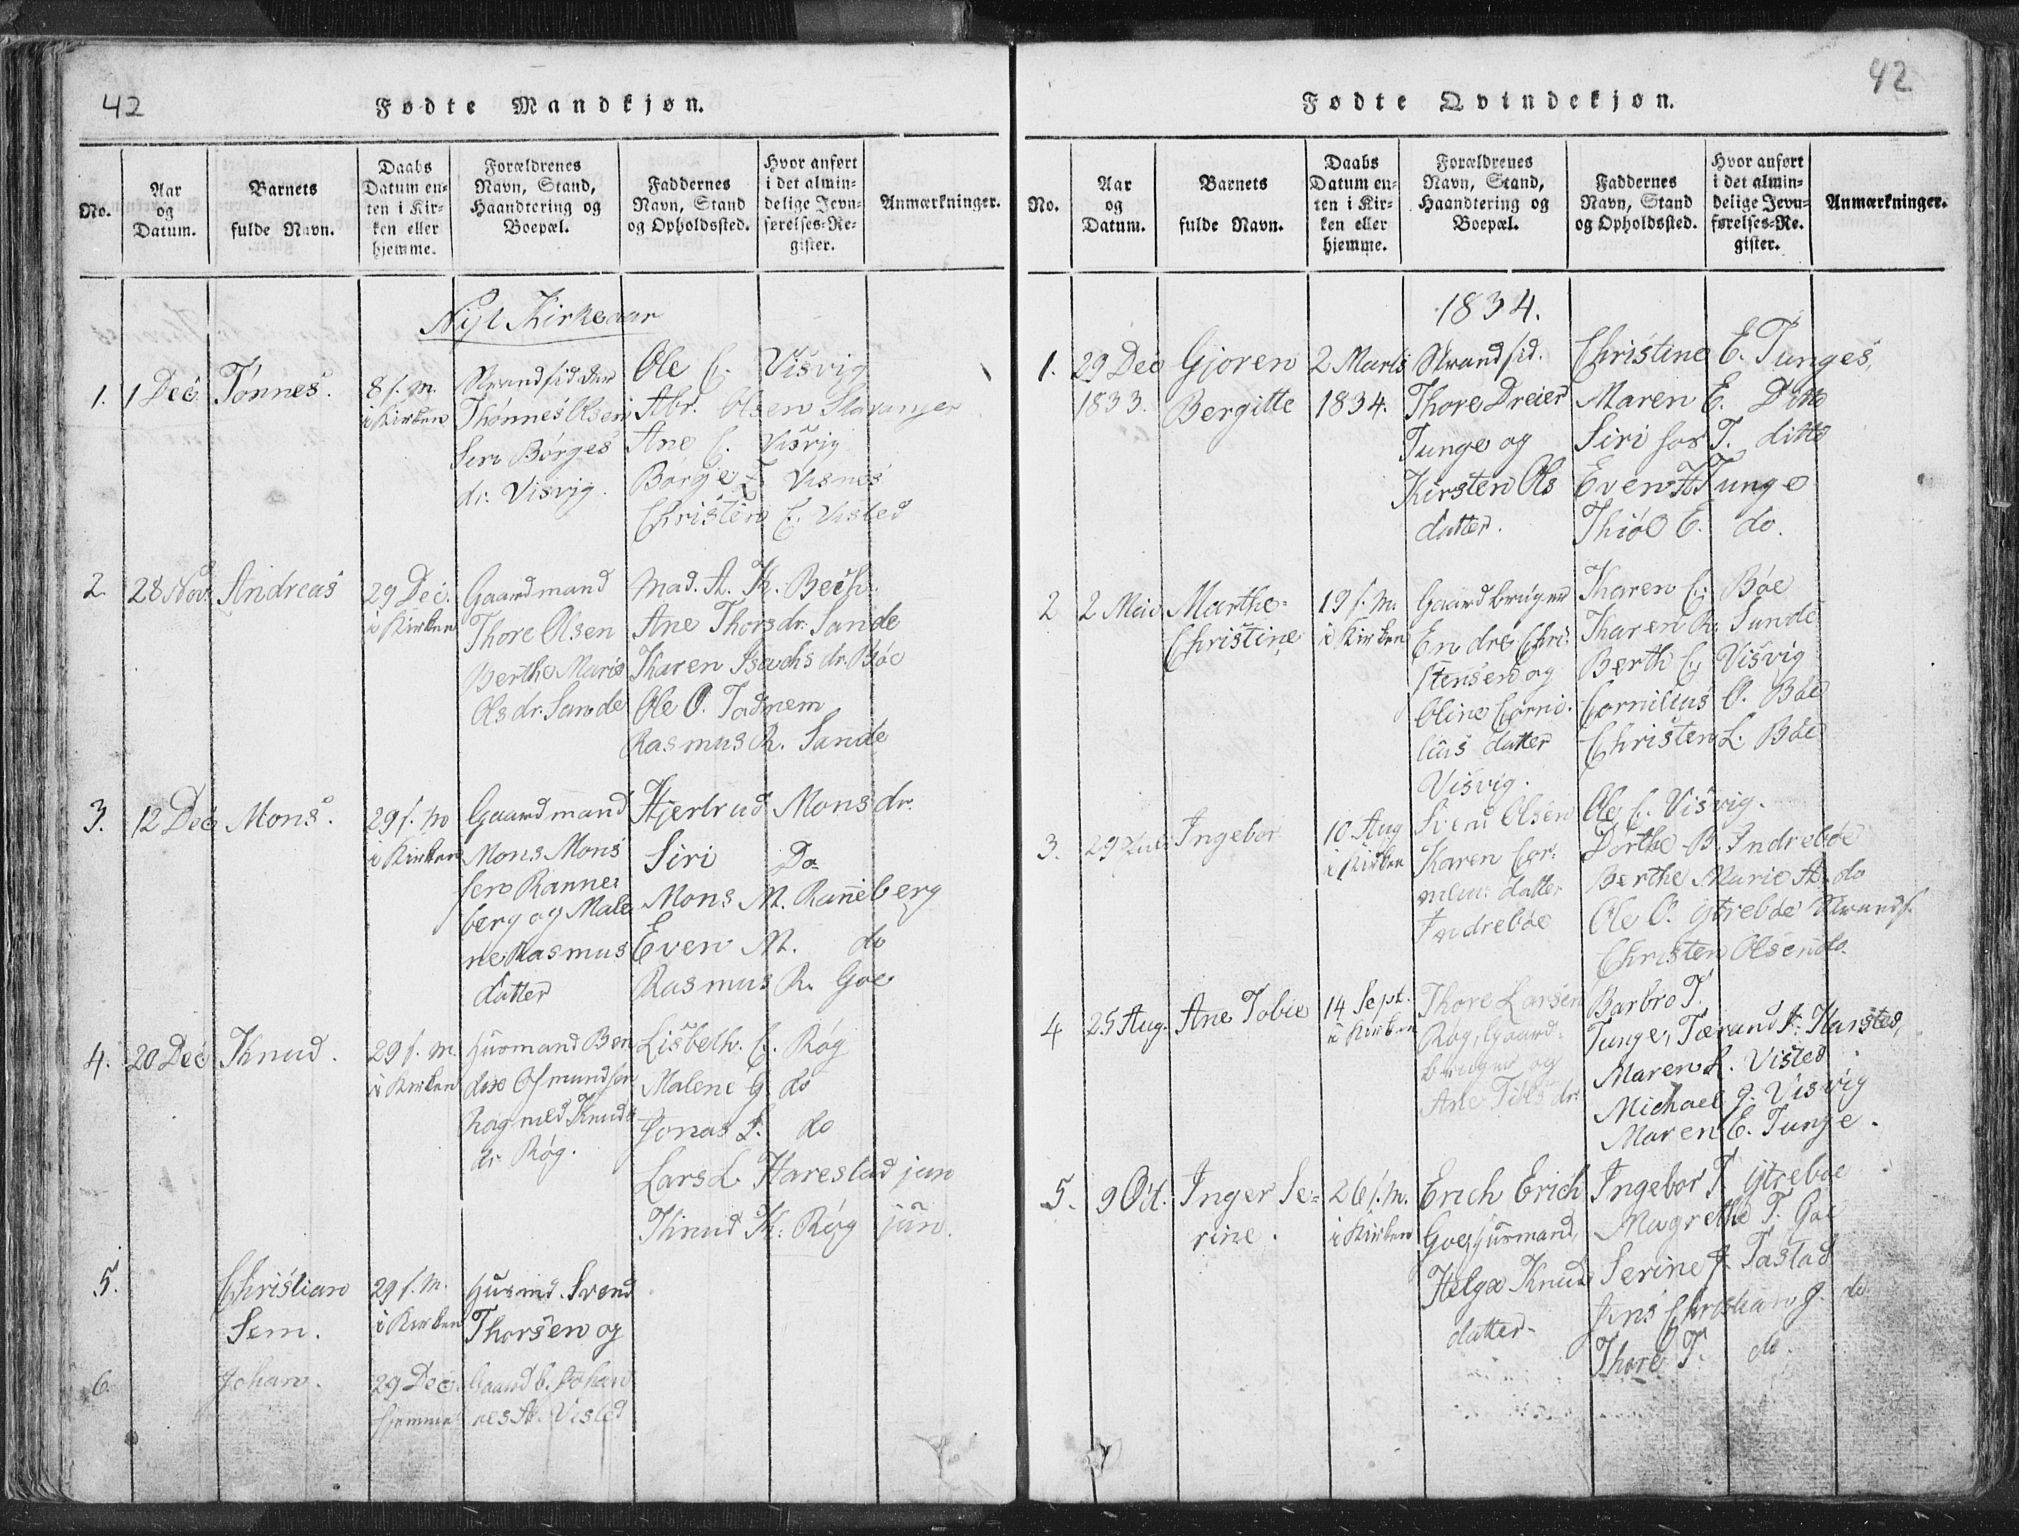 42
Fødte Mandkjøn.
No.
Aar og Datum.
Barnets fulde Navn.
Daabs Datum enten i Kirken eller hjemme.
Forældrenes Navn, Stand, Haandtering og Boepæl.
Faddernes Navn, Stand og Opholdssted.
Hvor anført i det almindelige Jevnførelses-Register.
Anmærkninger.
Nyt Kirkeaar
1. 1 Dec. Tønnes.
8 f. M.
i Kirken
Strandsidder
Thønnes Olsen
Seri Børges
dr. Visvig.
Ole C. Visvig
Abr. Olsen Stavanger
Ane C. Visvig
Børge Visnes
Christen C. Visted
2. 28 Nov. Andreas
29 Dec.
i Kirken
Gaardmand
Thore Olsen
Berthe Maria
Olsdr. Sande
Mad. A. K. Bech.
Ane Thorsdr. Sande
Karen Isachsdr. Bøe
Ole O. Tadnem
Rasmus R. Sande
3. 12 Dec Mons.
29 f. M
i Kirken
Gaardmand
Mons Mons
sen Rannes
berg og Male
ne Rasmus
datter
Hjertrud Monsdr.
Siri Do
Mons M. Ranneberg
Even M. do
Rasmus R. Goe
4. 20 Dec Knud.
29 f. M.
i Kirken
Husmand Ben
dix Osmundsen
Røg med Knuds
dr. Røg.
Lisbeth C. Røg
Malene G do
Jonas L. do
Lars L. Harestad jun
Knud K. Røg jun.
5.
Christian
Sem.
29 f. M.
i Kirken
Husmd. Svend
Thorsen og
6.
Johan.
29 Dec.
hjemme
Gaardb. Johan
nes A. Visted
42
Fødte Qvindekjøn.
No.
Aar og Datum.
Barnets fulde Navn.
Daabs Datum enten i Kirken eller hjemme.
Forældrenes Navn, Stand, Haandtering og Boepæl.
Faddernes Navn, Stand og Opholdssted.
Hvor anført i det almindelige Jevnførelses-Register.
Anmærkninger.
1834.
1. 29 Dec
1833.
Gjøren
Bergitte
2 Marts
1834.
Strandsid.
Thore Dreier
Tunge og
Kirsten Ols
datter.
Christine E. Tunges,
Maren E. Ditto
Siri sos T. ditto
Even A Tunge
Thiøl E. do.
2 2 Mai
Marthe
Christine
19 f. M.
i Kirken
Gaardbruger
Endre Chri
stensen og
Oline Corni
lius datter
Visvig.
Karen C. Bøe
Karen R. Sunde
Berth C. Visvig
Cornilius O. Bøe
Christen L. Bøe
3. 29 Juli Ingebor
10 Aug
i Kirken
Svend Olsen
Karen Cor
niliu: datter
Indrebøe
Ole C. Visvig.
Dorthe B. Indrebøe
Berthe Marie A. do
Ole O. Ytrebøe Strands.
Christen Olsen do.
4 25 Aug. Ane Tobie
14 Sept.
i Kirken
Thore Larsen
Røg, Gaard
bruger og
Ane Tobs dr.
Barbro T.
Tunge, Tørand A. Harsted,
Maren L. Visted
Michael J. Visvig
Maren E. Tunge.
5. 9 Oct.
Inger Se
rine.
26 f. M.
i Kirken
Erich Erich
Goe, Husmand,
Helga Knuds
datter
Ingebor T Ytrebøe
Magrethe T. Goe
Serine J. Tastad
Jens Christian J. do
Thore T. do.